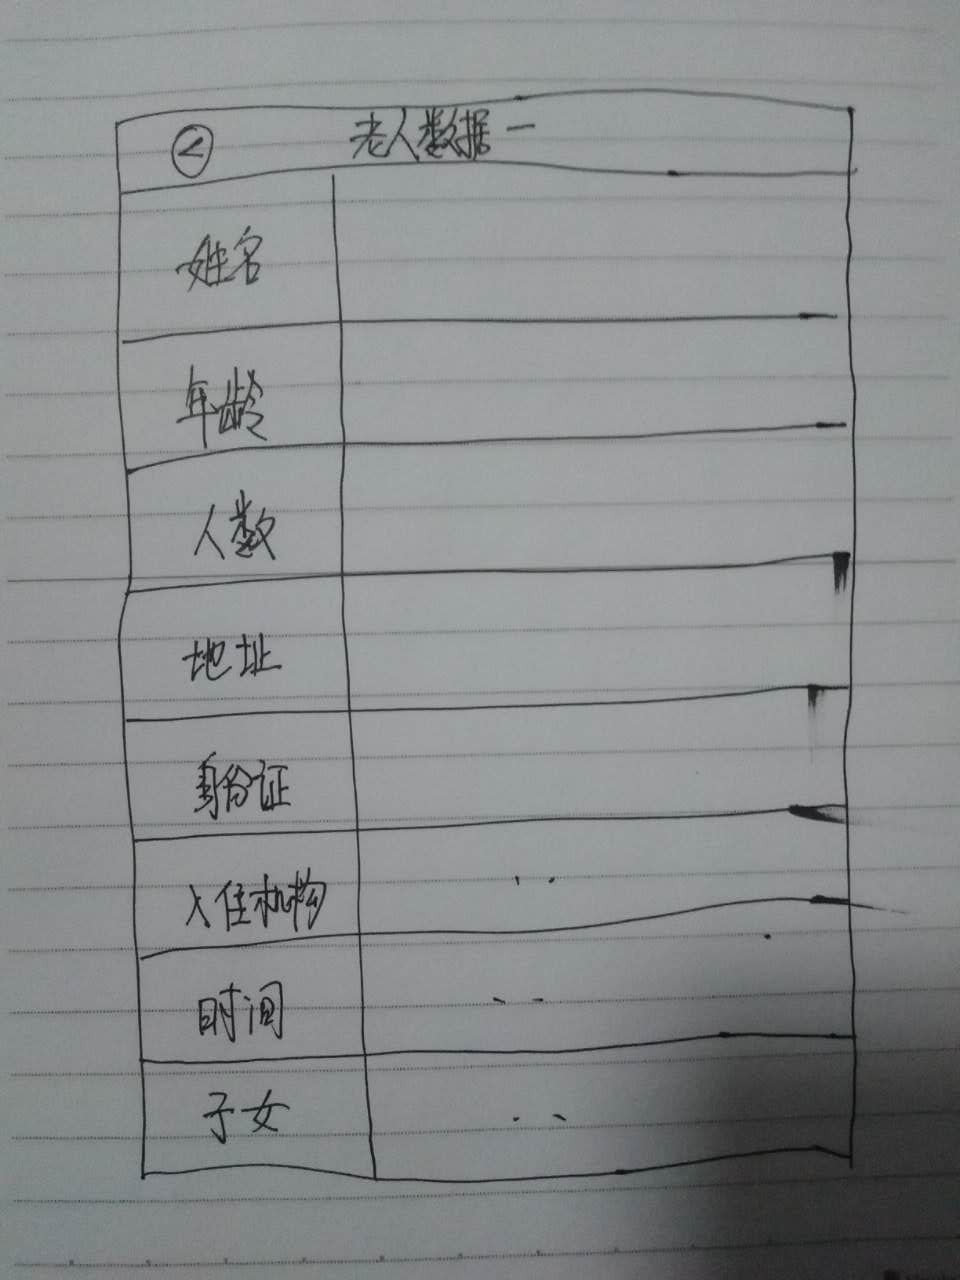 < 老人数据一
姓名
年龄
人数
地址
身份证
入住机构
时间
子女